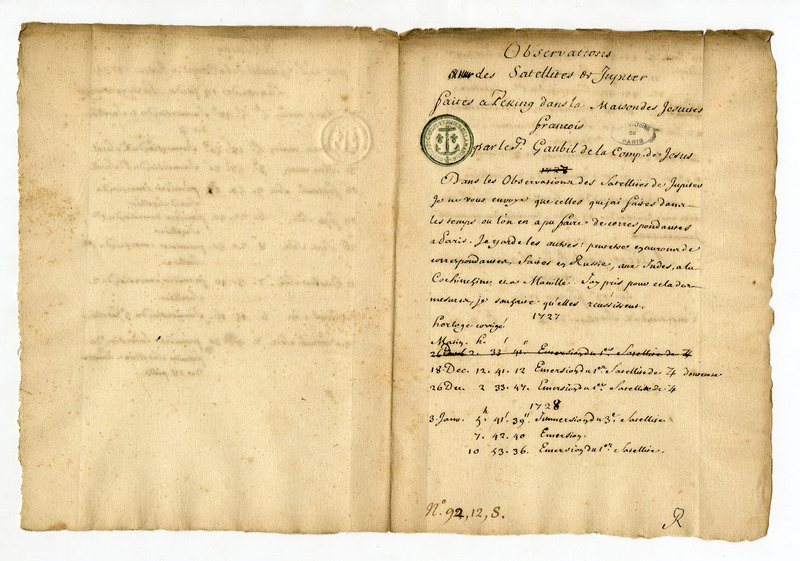 Observations
des Satellites de Jupiter
faites a Peking dans la Maison des Jesuites
francois
par le P. Gaubil de la Comp. de Jesus
1727
Dans les Observations des Satellites de Jupiter
Je ne vous envoye que celles qui j'ai faites dans
les temps ou l'on en a pu faire de correspondantes
a Paris. Je garde les autres: peutetre en auroit on de
correspondantes, faites en Russie, aux Indes, a la
Cochinchine et a Manille. J'ay pris pour cela des
mesures, je souhaite qu'elles reussissent.
1727
horloge corrigé
Matin. h. ' "
26 2. 33 41. Emersion du 1er Satellite de ♃
18 Dec. 12. 41. 12 Emersion du 1er Satellite de ♃ douteuse
26 Dec. 2 33. 47. Emersion du 1er Satellite de ♃
1728
3. Janv. 5h 41' 39" Immersion du 3e. Satellite
7. 42. 40 Emersion.
10 53. 36. Emersion du 1er Satellite.
N.o 92, 12, 8.
PARIS